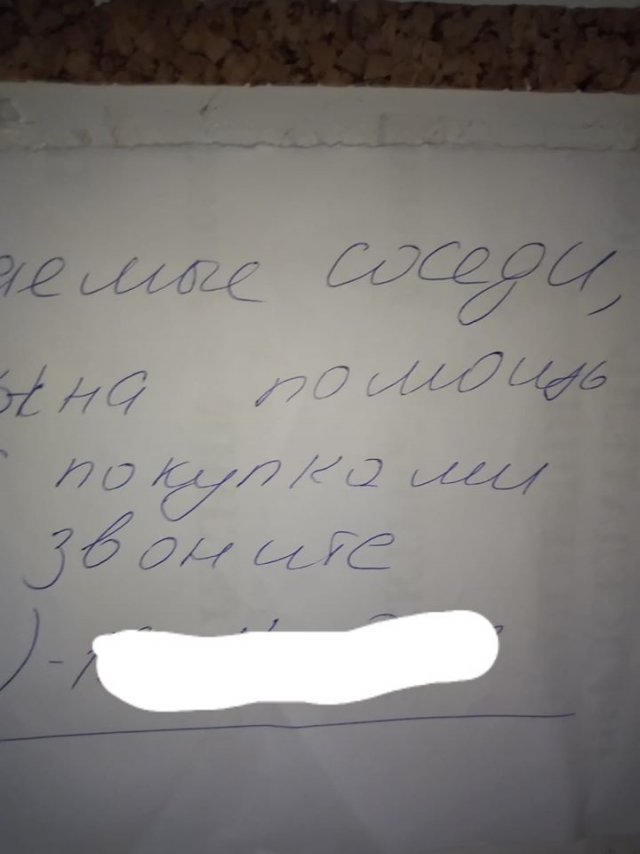 аемые соседи,
жна помощь
покупками
звоните
) -